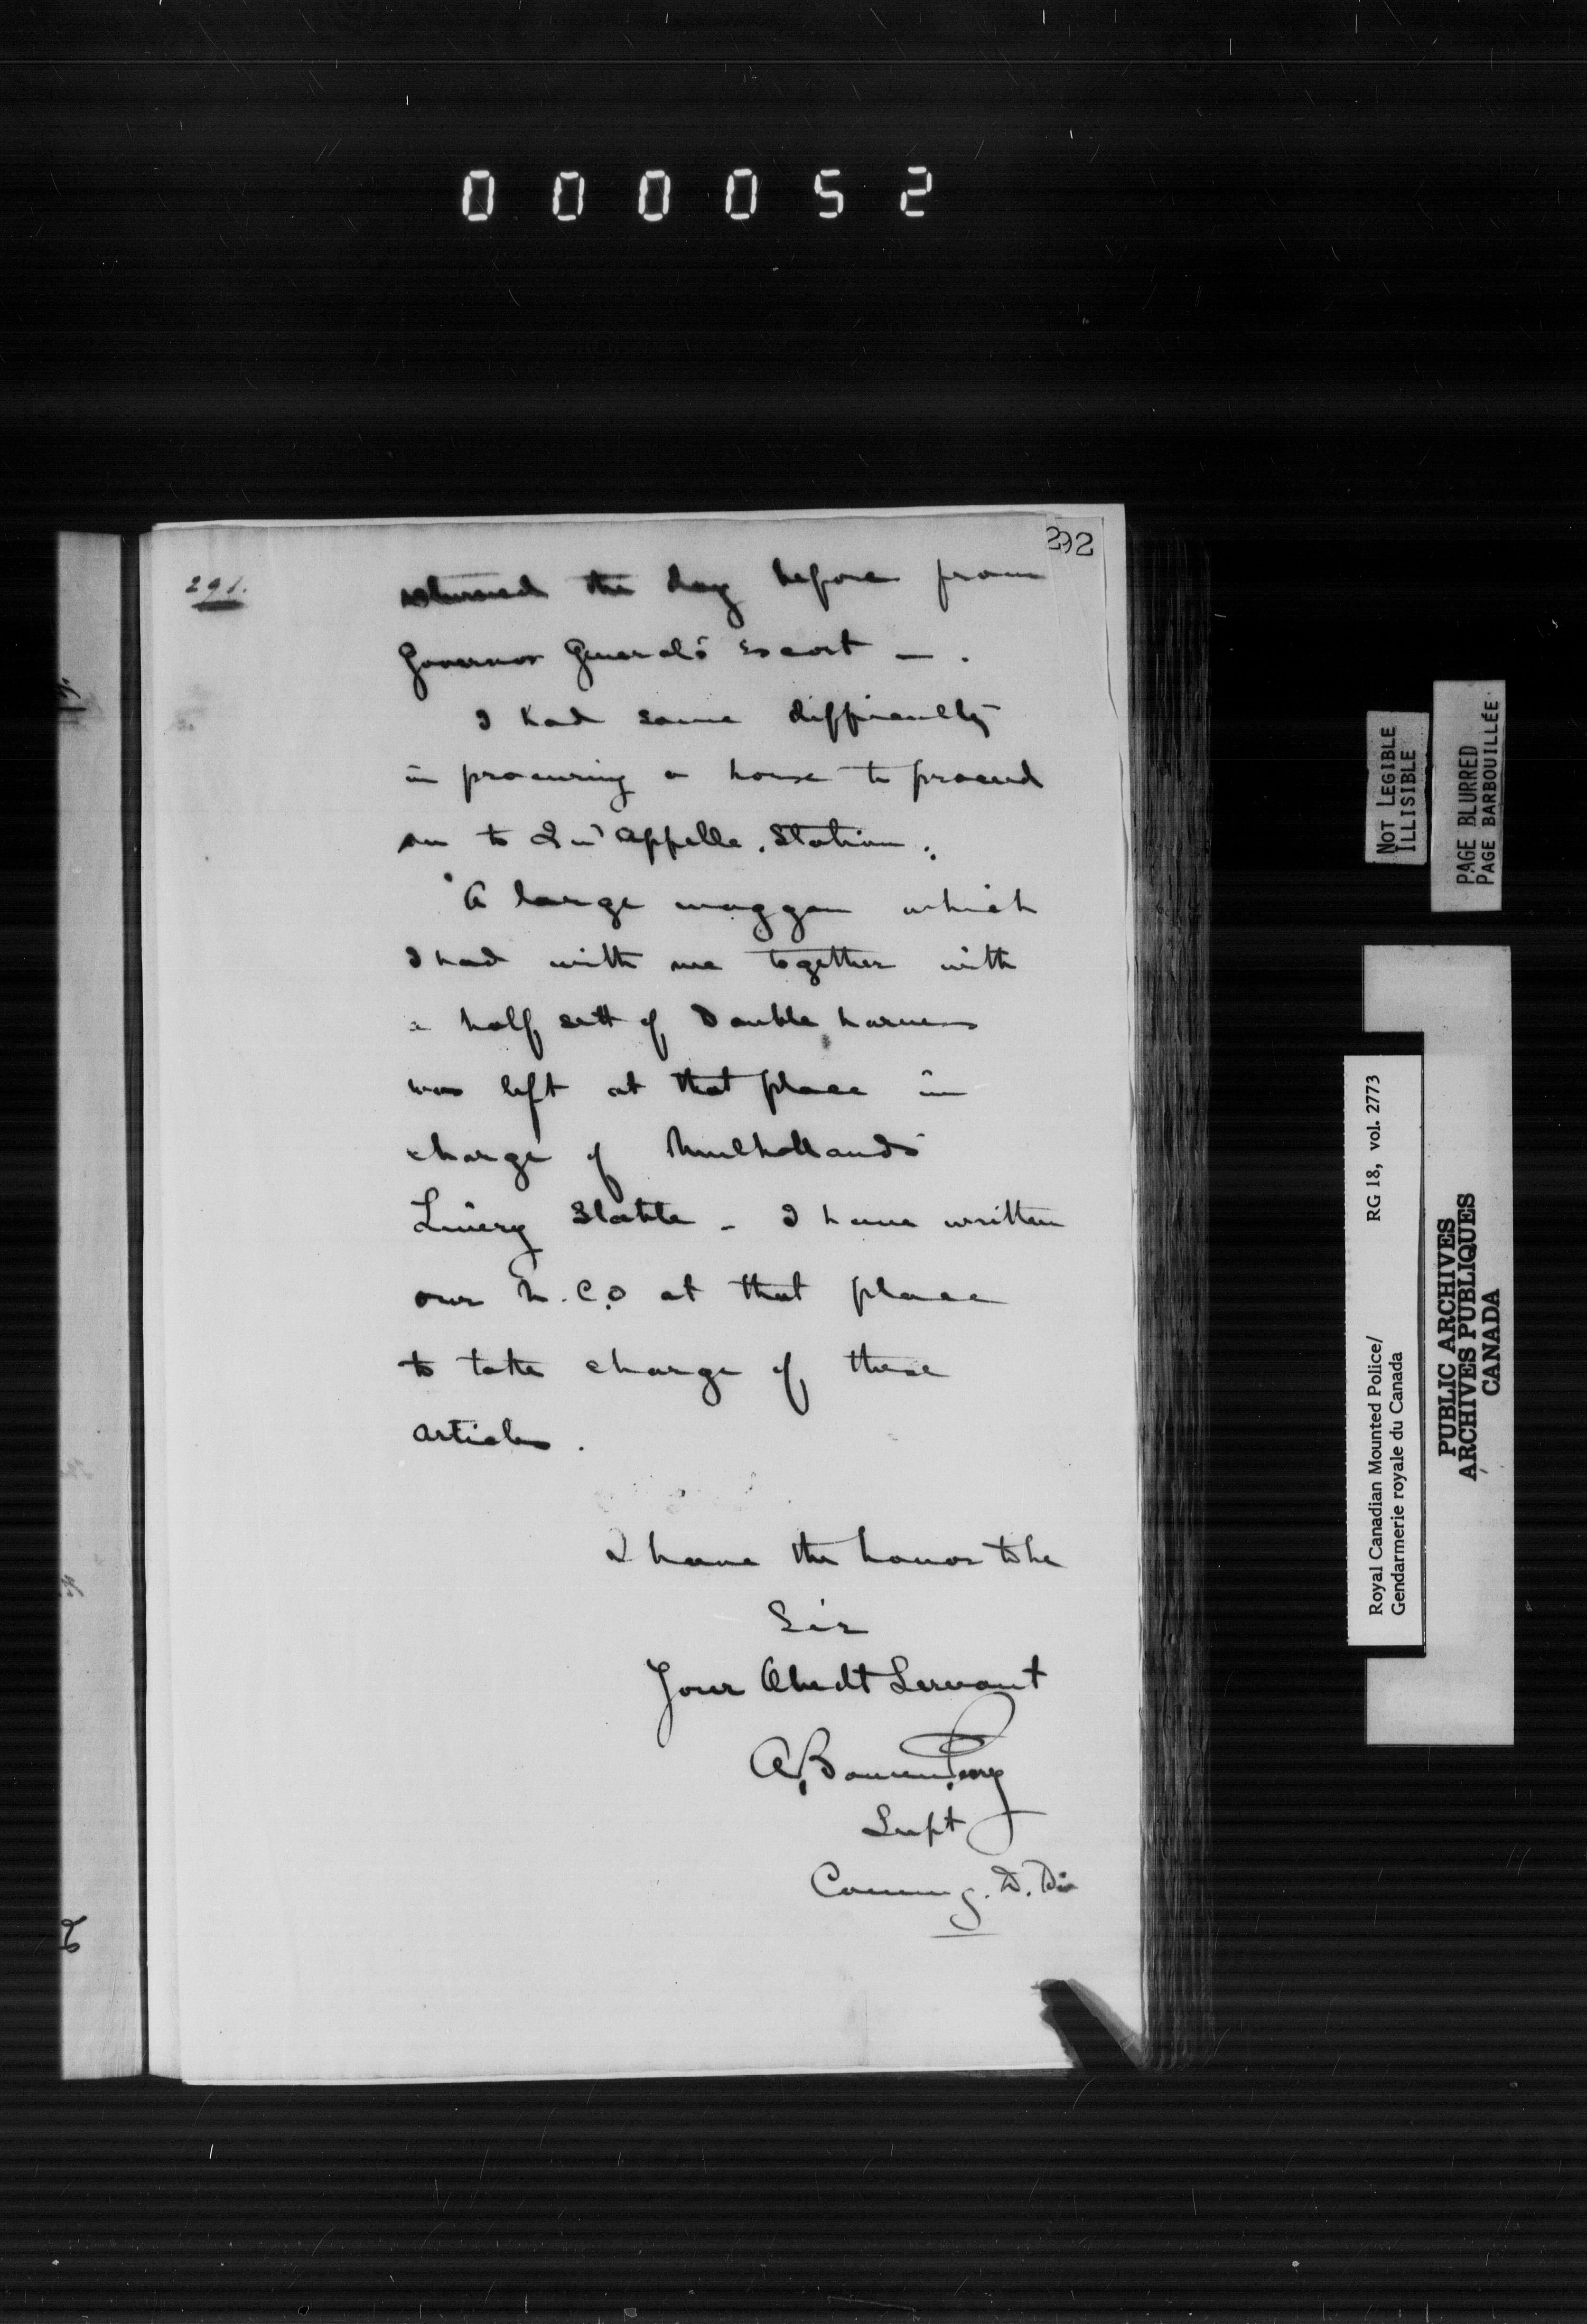 000052
292
291.
returned the day before from
Governor General's escort — .
I had some difficulty
in procuring a horse to proceed
on to Qu'Appelle Station.
A large waggon which
I had with me together with
a half sett of Double harness
was left at that place in
charge of Mulhollands
Livery Stable - I have written
our N.C.O at that place
to take charge of these
articles.
I have the honor to be
Sir
Your Obedt Servant
A. Bowen Perry
Supt
Commg. D. Div
NOT LEGIBLE
ILLISIBLE
PAGE BLURRED
PAGE BARBOUILLÉE
Royal Canadian Mounted Police/ RG 18, vol. 2773
Gendarmerie royale du Canada
PUBLIC ARCHIVES
ARCHIVES PUBLIQUES
CANADA